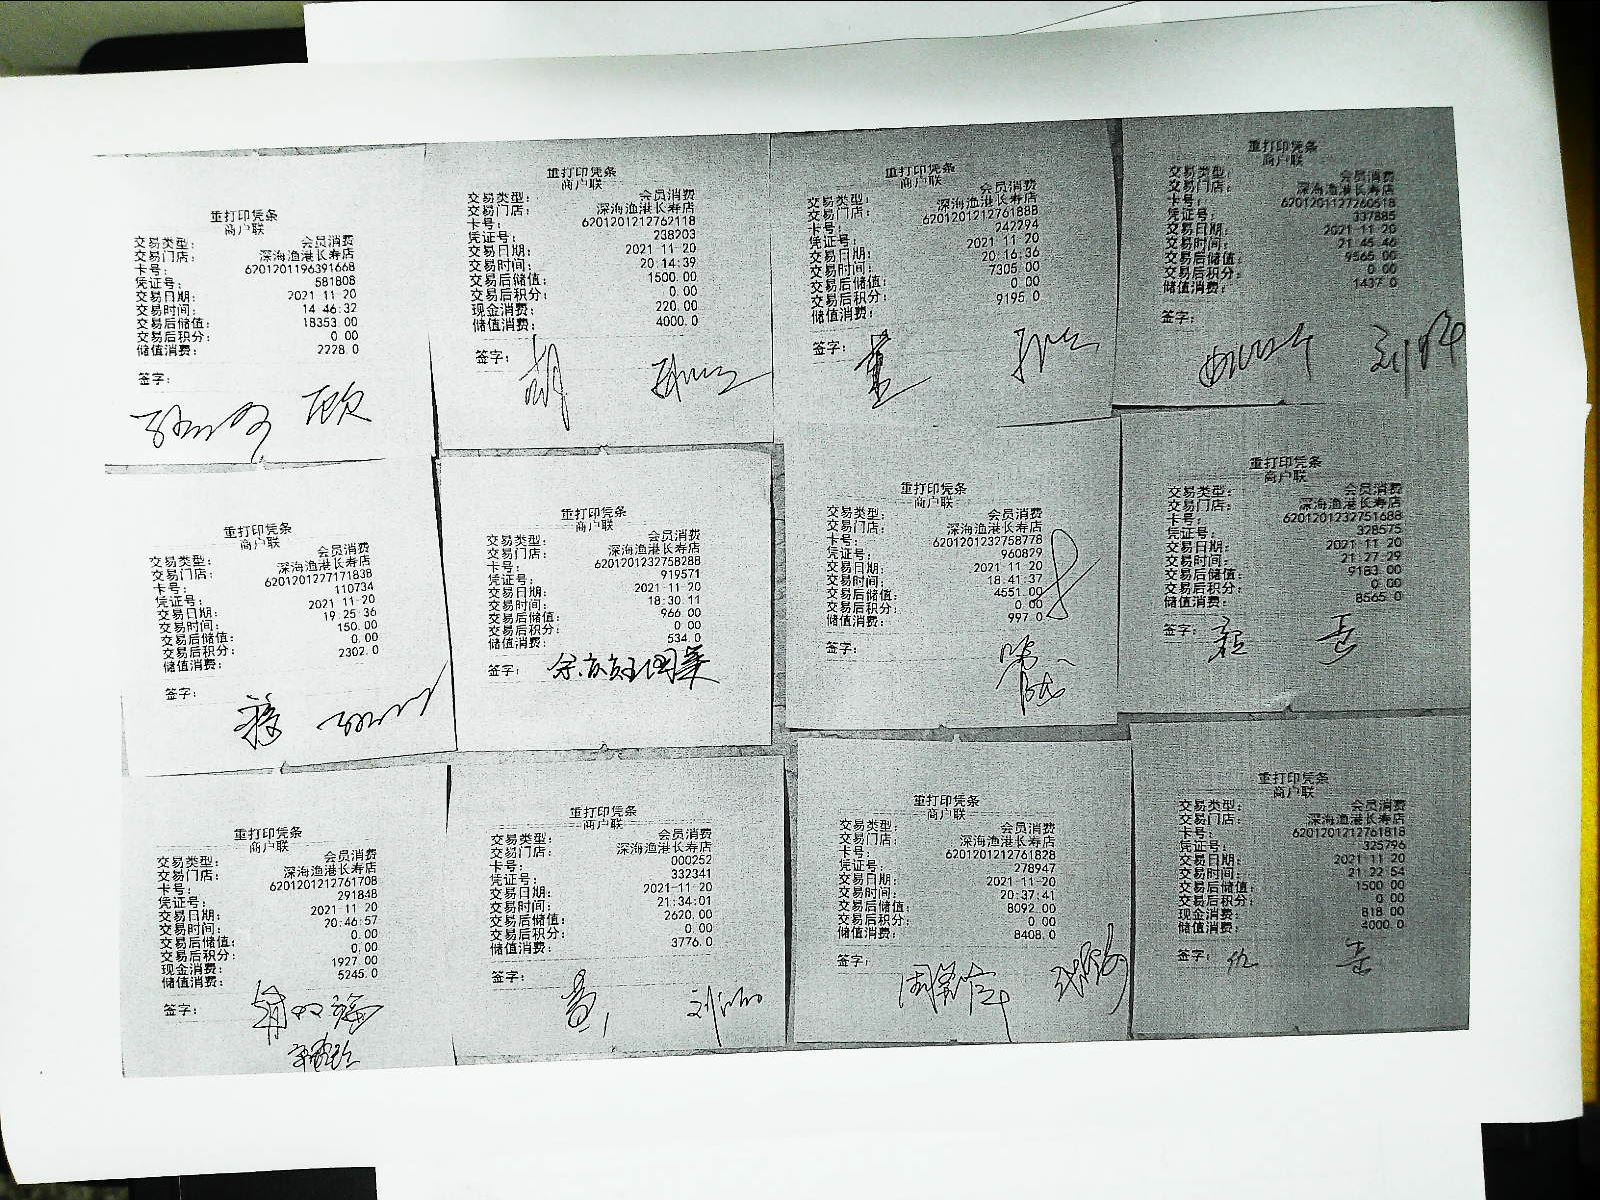 重打印凭条
商户联
交易类型： 会员消费
交易门店： 深海渔港长寿店
卡号： 6201201196391668
凭证号： 581808
交易日期： 2021-11-20
交易时间： 14:46:32
交易后储值： 18353.00
交易后积分： 0.00
储值消费： 2228.0
签字：
顾
重打印凭条
商户联
交易类型： 会员消费
交易门店： 深海渔港长寿店
卡号： 6201201212762118
凭证号： 238203
交易日期： 2021-11-20
交易时间： 20:14:39
交易后储值： 1500.00
交易后积分： 0.00
现金消费： 220.00
储值消费： 4000.0
签字： 胡
重打印凭条
商户联
交易类型： 会员消费
交易门店： 深海渔港长寿店
卡号： 6201201212761888
凭证号： 242294
交易日期： 2021-11-20
交易时间： 20:16:36
交易后储值： 7305.00
交易后积分： 0.00
储值消费： 9195.0
签字： 董
重打印凭条
商户联
交易类型： 会员消费
交易门店： 深海渔港长寿店
卡号： 6201201127260518
凭证号： 337885
交易日期： 2021-11-20
交易时间： 21:45:46
交易后储值： 9565.00
交易后积分： 0.00
储值消费： 1437.0
签字：
重打印凭条
商户联
交易类型： 会员消费
交易门店： 深海渔港长寿店
卡号： 6201201227171838
凭证号： 110734
交易日期： 2021-11-20
交易时间： 19:25:36
交易后储值： 150.00
交易后积分： 0.00
储值消费： 2302.0
签字：
重打印凭条
商户联
交易类型： 会员消费
交易门店： 深海渔港长寿店
卡号： 6201201232758288
凭证号： 919571
交易日期： 2021-11-20
交易时间： 18:30:11
交易后储值： 966.00
交易后积分： 0.00
储值消费： 534.0
签字：
重打印凭条
商户联
交易类型： 会员消费
交易门店： 深海渔港长寿店
卡号： 6201201232758778
凭证号： 960829
交易日期： 2021-11-20
交易时间： 18:41:37
交易后储值： 4551.00
交易后积分： 0.00
储值消费： 997.0
签字：
重打印凭条
商户联
交易类型： 会员消费
交易门店： 深海渔港长寿店
卡号： 6201201232751688
凭证号： 328575
交易日期： 2021-11-20
交易时间： 21:27:29
交易后储值： 9183.00
交易后积分： 0.00
储值消费： 8565.0
签字：
重打印凭条
商户联
交易类型： 会员消费
交易门店： 深海渔港长寿店
卡号： 6201201212761708
凭证号： 291848
交易日期： 2021-11-20
交易时间： 20:46:57
交易后储值： 0.00
交易后积分： 0.00
现金消费： 1927.00
储值消费： 5245.0
签字：
重打印凭条
商户联
交易类型： 会员消费
交易门店： 深海渔港长寿店
卡号： 000252
凭证号： 332341
交易日期： 2021-11-20
交易时间： 21:34:01
交易后储值： 2620.00
交易后积分： 0.00
储值消费： 3776.0
签字：
重打印凭条
商户联
交易类型： 会员消费
交易门店： 深海渔港长寿店
卡号： 6201201212761828
凭证号： 278947
交易日期： 2021-11-20
交易时间： 20:37:41
交易后储值： 8092.00
交易后积分： 0.00
储值消费： 8408.0
签字：
重打印凭条
商户联
交易类型： 会员消费
交易门店： 深海渔港长寿店
卡号： 6201201212761818
凭证号： 325796
交易日期： 2021-11-20
交易时间： 21:22:54
交易后储值： 1500.00
交易后积分： 0.00
现金消费： 818.00
储值消费： 4000.0
签字：